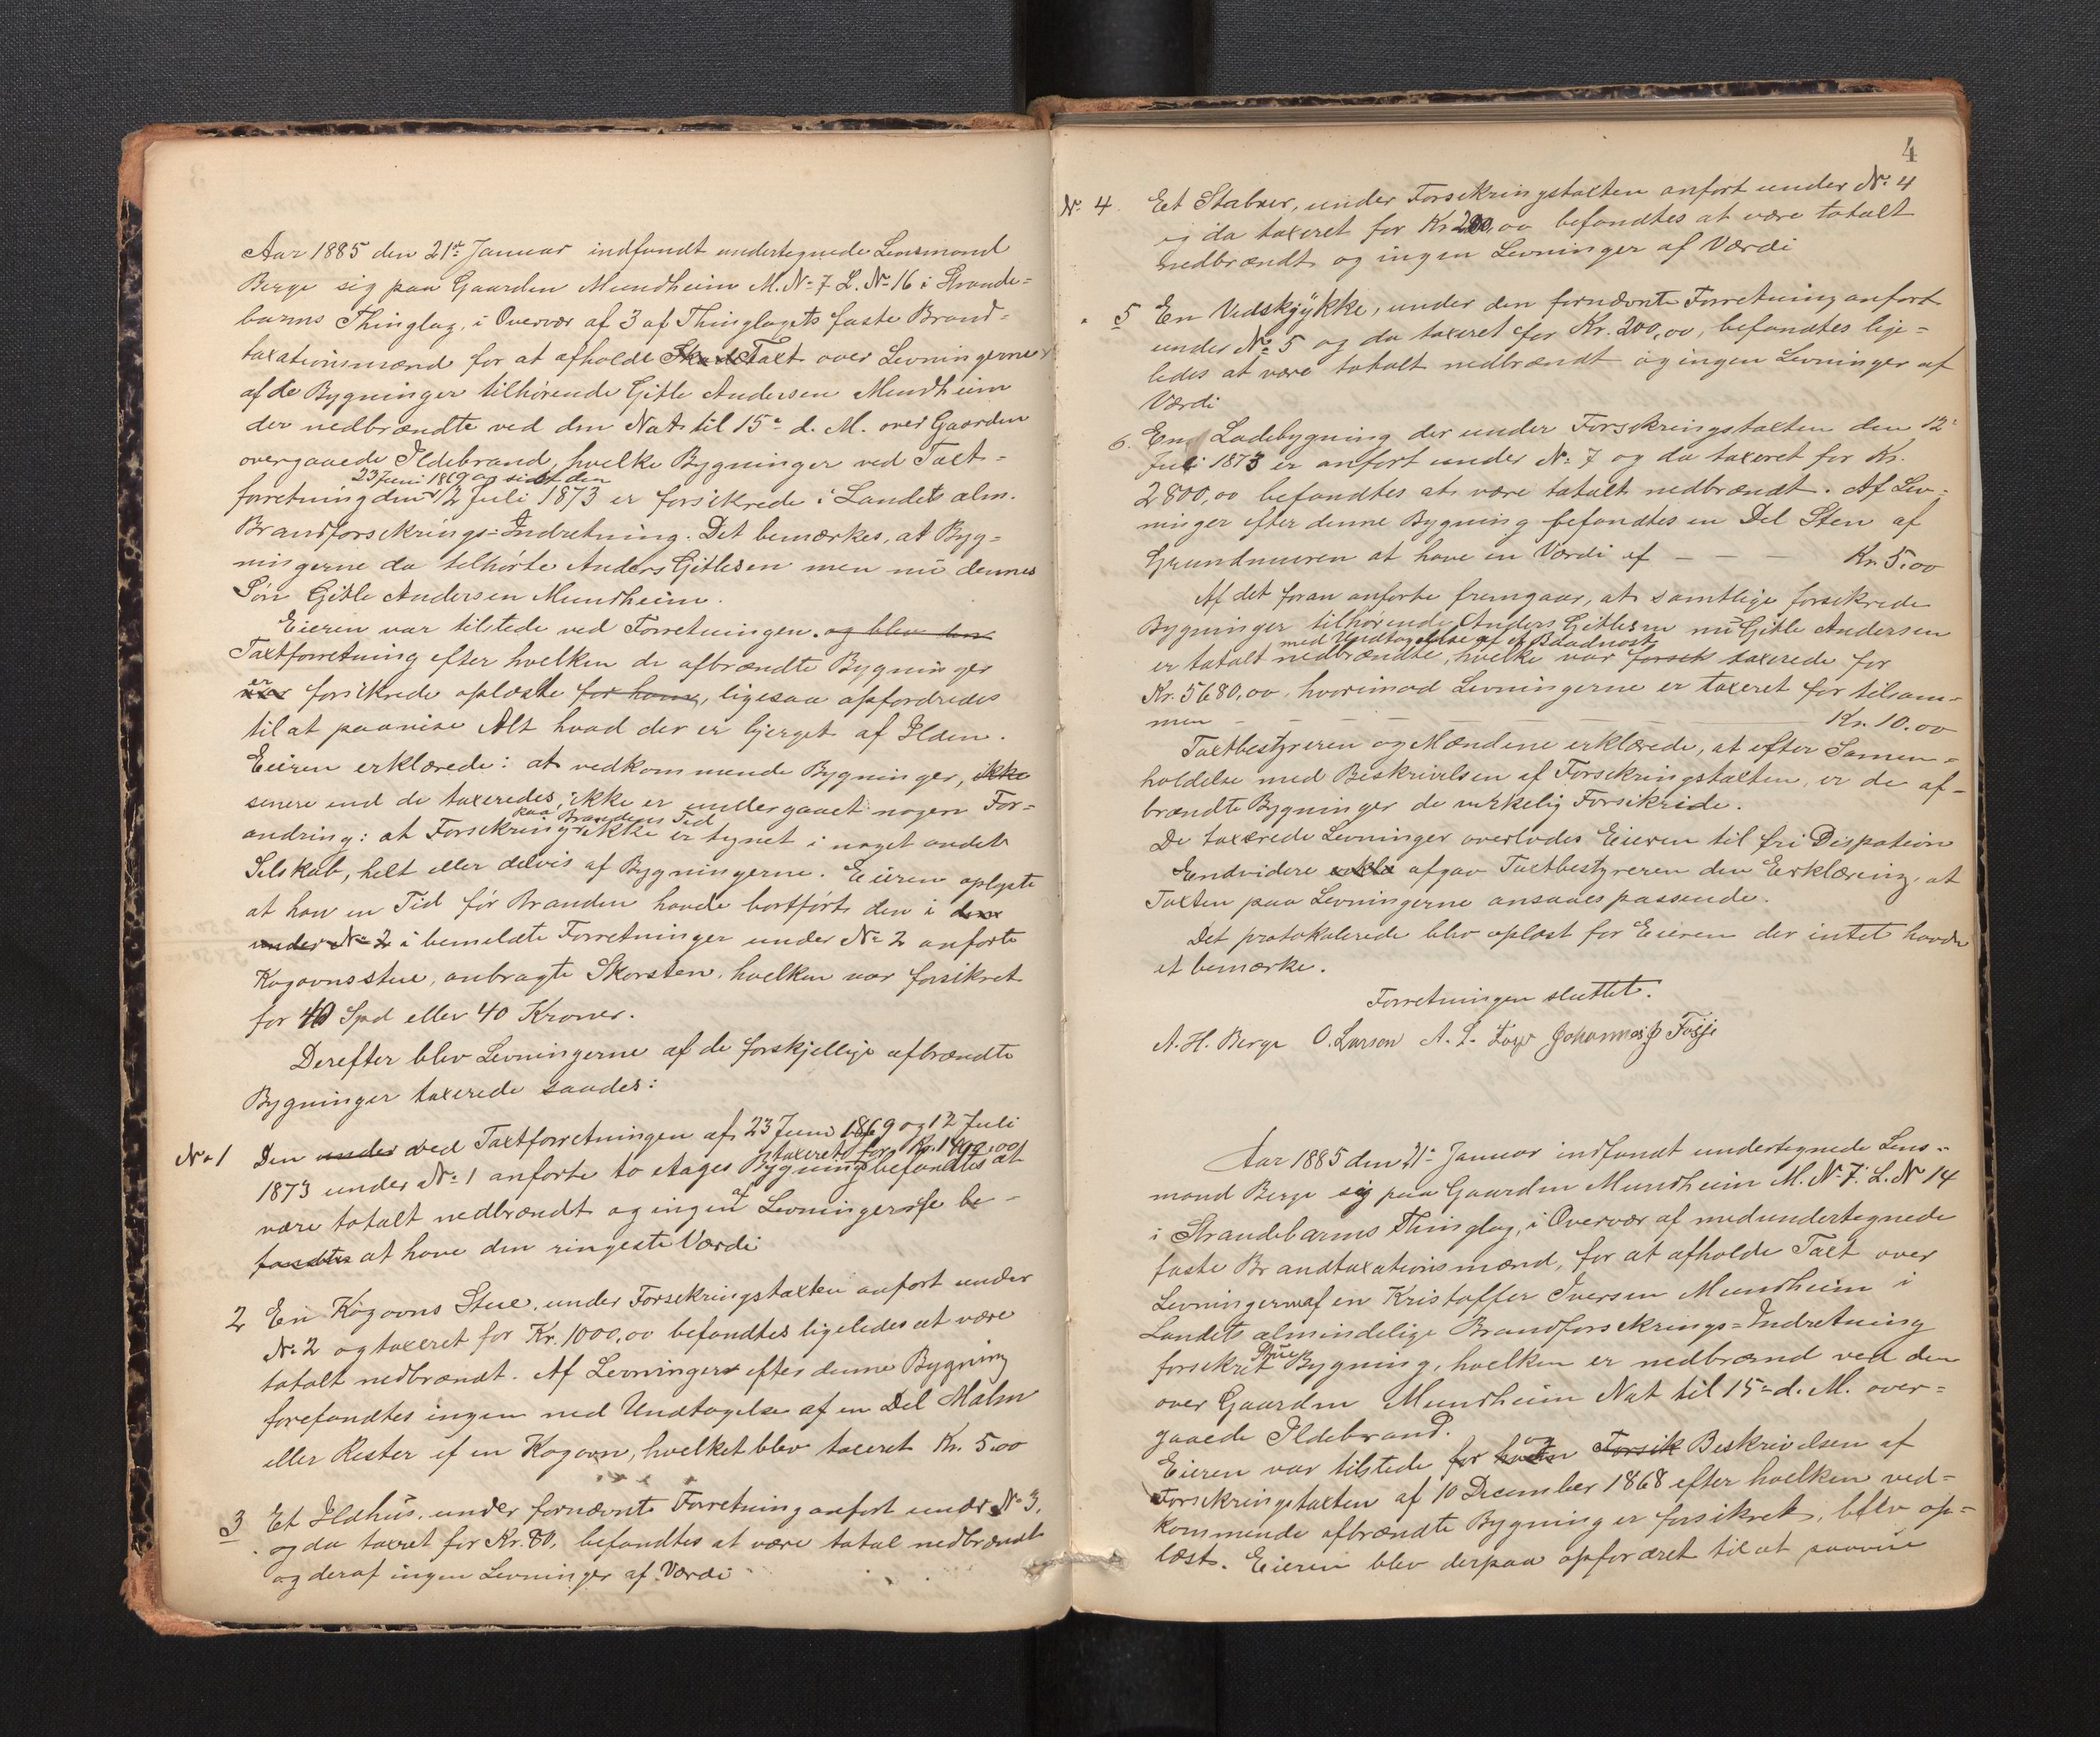 Aar 1885 den 21de Januar indfandt undertegnede Lensmand
Berge sig paa Gaarden Mundheim M. No 7 L. No 16 i Strande=
barms Thinglag, i Overvær af 3 af Thinglagets faste Brand-
taxationsmænd for at afholde Skade Taxt over Levningerne
af de Bygninger tilhørende Gitle Andersen Mundheim
der nedbrændte ved den Nat til 15de d. M. over Gaarden
overgaaede Ildebrand, hvilke Bygninger ved Taxt-
23 Juni 1869 og sidst den
forretning den 12 Juli 1873 er forsikrede i Landets alm.
Brandforsikrings-Indretning. Det bemærkes, at Byg=
ningerne da tilhørte Anders Gitlesen men nu dennes
Søn Gitle Andersen Mundheim.
Eieren var tilstede ved Forretningen. og blev den
Taxtforretning efter hvilken de afbrændte Bygninger
er
var forsikrede oplæste for ham, ligesaa opfordredes
til at paavise Alt hvad der er bjerget af Ilden.
Eieren erklærede: at vedkommende Bygninger, ikke
senere end de taxeredes, ikke er undergaaet nogen For=
paa Brandens Tid
andring: at Forsikring ikke er tegnet i noget andet
Selskab, helt eller delvis af Bygningerne. Eieren oplyste
at han en Tid før Branden havde bortført den i den
under No 2 i bemeldte Forretninger under No 2 anførte
Kogovnsstue, anbragte Skorsten, hvilken var forsikret
for 10 Spd eller 40 Kroner.
Derefter blev Levningerne af de forskjellige afbrændte
Bygninger taxerede saades:
No 1 Den under ved Taxtforretningen af 23 Juni 1869 og 12 Juli
taxeret for Kr. 1400,00
1873 under No 1 anførte to etages Bygning befandtes at
være totalt nedbrændt og ingen af Levningerne be-
fandtes at have den ringeste Værdi
2 En Kogovns Stue, under Forsikringstaxten anført under
No 2 og taxeret for Kr. 1000,00 befandtes ligeledes at være
totalt nedbrændt. Af Levninger efter denne Bygning
forefandtes ingen med Undtagelse af en Del Malm
eller Rester af en Kogovn, hvilket blev taxeret Kr. 5.00
3 Et Ildhus, under fornævnte Forretning anført under No 3,
og da taxret for Kr. 80, befandtes at være total nedbrændt
og deraf ingen Levninger af Værdi
4
No 4. Et Stabur, under Forsikringstaxten anført under No 4
og da taxeret for Kr 200,00 befandtes at være totalt
nedbrændt og ingen Levninger af Værdi
5 En Vedskjykke, under den fornævnte Forretning anført
under No 5 og da taxeret for Kr. 200,00, befandtes lige=
ledes at være totalt nedbrændt og ingen Levninger af
Værdi
6. En Ladebygning der under Forsikringstaxten den 12
Juli 1873 er anført under No 7 og da taxeret for Kr.
2800,00 befandtes at være totalt nedbrændt. Af Lev-
ninger efter denne Bygning befandtes en Del Sten af
Grundmuren at have en Værdi af - - - Kr. 5.00
Af det foran anførte fremgaar, at samtlige forsikrede
Bygninger tilhørende Anders Gitlesen nu Gitle Andersen
med Undtagelse af et Baadnøst
er totalt nedbrændte, hvilke var forsik taxerede for
Kr. 5680,00, hvorimod Levningerne er taxeret for tilsam-
men - - - - - - - - Kr. 10.00
Taxtbestyreren og Mændene erklærede, at efter Samen=
holdelse med Beskrivelsen af Forsikringstaxten, er de af-
brændte Bygninger de virkelig Forsikrede.
De taxerede Levninger overlodes Eieren til fri Dispotion
Endvidere erklæ afgav Taxtbestyreren den Erklæring, at
Taxten paa Levningerne ansaaes passende.
Det protokolerede blev oplæst for Eieren der intet havde
at bemærke.
Forretningen sluttet.
A. H. Berge O. Larsen A. L. Johannes J Fosse
Aar 1885 den 21de Januar indfandt undertegnede Lens-
mand Berge sig paa Gaarden Mundheim M. No 7. L. No 14
i Strandebarms Thinglag, i Overvær af medundertegnede
faste Brandtaxationsmænd, for at afholde Taxt over
Levningerne af en Kristoffer Iversen Mundheim i
Landets almindelige Brandforsikrings=Indretning
Stue
forsikret Bygning, hvilken er nedbrænd ved den
over Gaarden Mundheim Nat til 15de d. M. over=
gaaede Ildebrand.
Eieren var tilstede for hvem og Forsik Beskrivelsen af
Forsikringstaxten af 10 December 1868 efter hvilken ved-
kommende afbrændte Bygning er forsikret, blev op=
læst. Eieren blev derpaa opfordret til at paavise